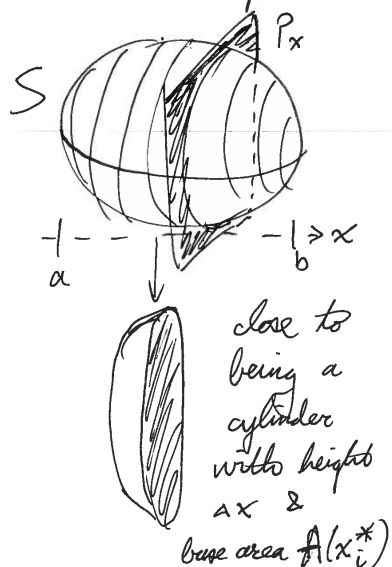 S
Pₓ
a
b > x
close to
being a
cylinder
with height
Δx &
base area A(xᵢ*)